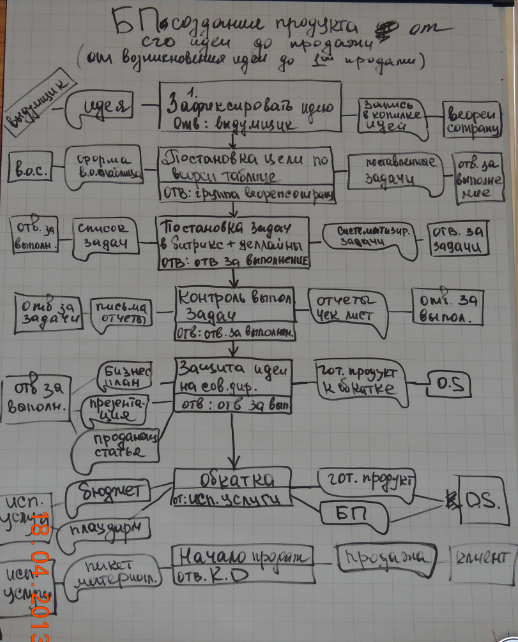 БП создание продукта от
его идеи до продажи
(от возникновения идеи до 1ой продажи)
выдумщик
идея
1.
Зафиксировать идею
Отв: выдумщик
Запись
в копилке
идей
в.о.с.
форма
Постановка цели по
таблице
отв: группа
поставленные
задачи
отв. за
выполне
ние
отв. за
выполн.
список
задач
Постановка задач
в битрикс + дедлайны
отв: отв за выполнение
систематизир.
задачи
отв. за
задачи
отв за
задачи
письма
отчеты
Контроль выпол
задач
отв: отв. за выполнен.
отчеты
чек лист
отв. за
выпол.
отв за
выполн.
Бизнес
план
презента-
ция
продающ
статья
Защита идеи
на сов. дир.
отв: отв за вып
гот. продукт
к обкатке
O.S
исп.
услуги
бюджет
плацдарм
обкатка
от: исп. услуги
гот. продукт
БП
O.S.
исп.
услуги
пакет
материал.
Начало продаж
отв. К.D
продажа
клиент
18.04.2013